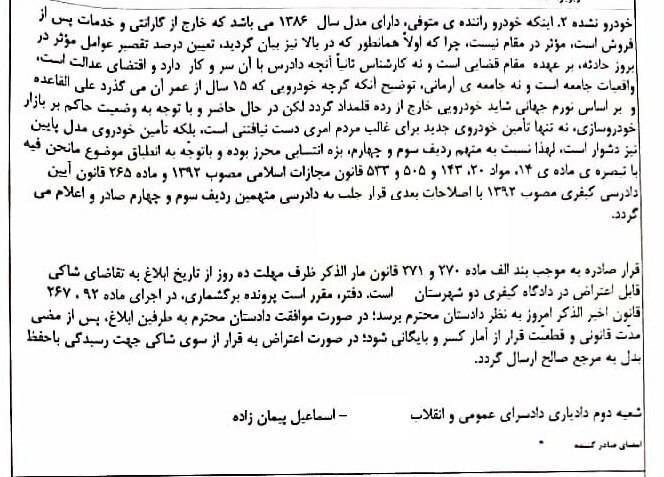 خودرو نشده ۲. اینکه خودرو راننده ی متوفی، دارای مدل سال ۱۳۸۶ می باشد که خارج از گارانتی و خدمات پس از
فروش است، مؤثر در مقام نیست، چرا که اولاً همانطور که در بالا نیز بیان گردید، تعیین درصد تقصیر عوامل مؤثر در
بروز حادثه، بر عهده مقام قضایی است و نه کارشناس ثانیاً آنچه دادرس با آن سر و کار دارد و اقتضای عدالت است،
واقعیات جامعه است و نه جامعه ی آرمانی، توضیح آنکه گرچه خودرویی که ۱۵ سال از عمر آن می گذرد علی القاعده
و بر اساس نورم جهانی شاید خودرویی خارج از رده قلمداد گردد لکن در حال حاضر و با توجه به وضعیت حاکم بر بازار
خودروسازی، نه تنها تأمین خودروی جدید برای غالب مردم امری دست نیافتنی است، بلکه تأمین خودروی مدل پایین
نیز دشوار است، لهذا نسبت به متهم ردیف سوم و چهارم، بزه انتسابی محرز بوده و باتوجه به انطباق موضوع مانحن فیه
با تبصره ی ماده ی ۱۴، مواد ۲۰، ۱۴۳ و ۵۰۵ و ۵۳۳ قانون مجازات اسلامی مصوب ۱۳۹۲ و ماده ۲۶۵ قانون آیین
دادرسی کیفری مصوب ۱۳۹۲ با اصلاحات بعدی قرار جلب به دادرسی متهمین ردیف سوم و چهارم صادر و اعلام می
گردد.
قرار صادره به موجب بند الف ماده ۲۷۰ و ۲۷۱ قانون مار الذکر ظرف مهلت ده روز از تاریخ ابلاغ به تقاضای شاکی
قابل اعتراض در دادگاه کیفری دو شهرستان است. دفتر، مقرر است پرونده برگشماری، در اجرای ماده ۹۲ ، ۲۶۷
قانون اخیر الذکر امروز به نظر دادستان محترم برسد؛ در صورت موافقت دادستان محترم به طرفین ابلاغ، پس از مضی
مدّت قانونی و قطعیّت قرار از آمار کسر و بایگانی شود؛ در صورت اعتراض به قرار از سوی شاکی جهت رسیدگی باحفظ
بدل به مرجع صالح ارسال گردد.
شعبه دوم دادیاری دادسرای عمومی و انقلاب – اسماعیل پیمان زاده
امضای صادر کننده *